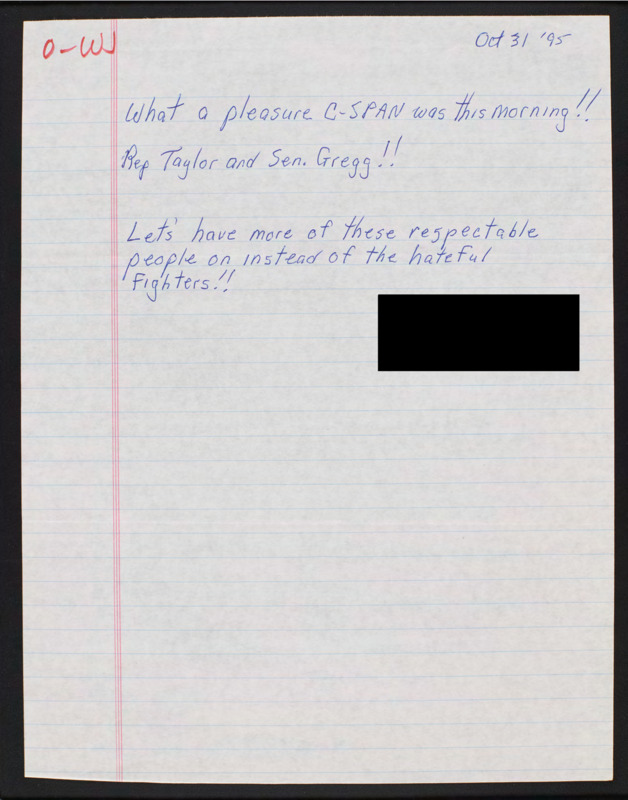 O-WJ
Oct 31 '95
What a pleasure C-SPAN was this morning!!
Rep Taylor and Sen. Gregg!!
Let's have more of these respectable
people on instead of the hateful
Fighters!!